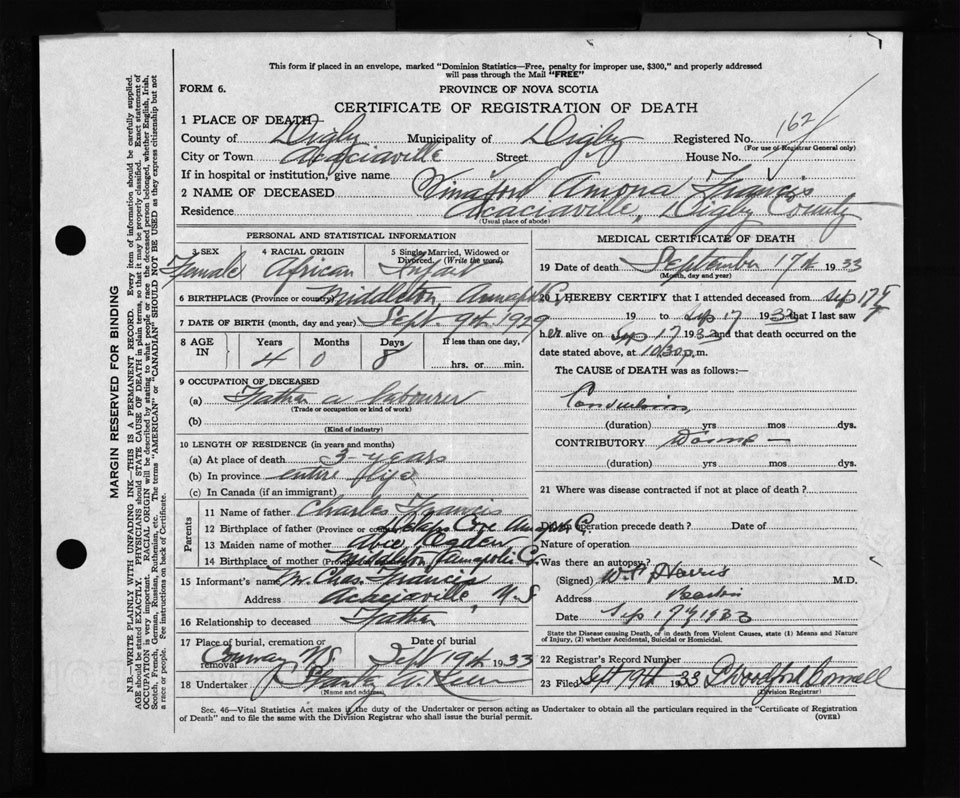 This form if placed in an envelope, marked "Dominion Statistics—Free, penalty for improper use, $300," and properly addressed
will pass through the Mail "FREE"
FORM 6.
PROVINCE OF NOVA SCOTIA
CERTIFICATE OF REGISTRATION OF DEATH
1 PLACE OF DEATH—
County of Digby Municipality of Digby Registered No. 162
(For use of Registrar General only)
City or Town Acaciaville Street House No.
If in hospital or institution, give name
2 NAME OF DECEASED Amona Francis
Residence Acaciaville, Digby County
(Usual place of abode)
PERSONAL AND STATISTICAL INFORMATION
3 SEX 4 RACIAL ORIGIN 5 Single, Married, Widowed or
Divorced. (Write the word)
Female African Infant
6 BIRTHPLACE (Province or country) Middleton, Annapolis C.
7 DATE OF BIRTH (month, day and year) Sept. 9th 1929
8 AGE IN Years Months Days If less than one day,
4 0 8 hrs. or min.
9 OCCUPATION OF DECEASED
(a) Father a labourer
(Trade or occupation or kind of work)
(b)
(Kind of industry)
10 LENGTH OF RESIDENCE (in years and months)
(a) At place of death 3 years
(b) In province entire life
(c) In Canada (if an immigrant)
Parents
11 Name of father Charles Francis
12 Birthplace of father (Province or country) Cove Annapolis C.
13 Maiden name of mother Ogden
14 Birthplace of mother (Province Middleton Annapolis C.
15 Informant's name Mr Chas. Francis
Address Acaciaville, N.S.
16 Relationship to deceased Father
17 Place of burial, cremation or removal Date of burial
Conway N.S. Sept 19th 1933
18 Undertaker
(Name and address)
MEDICAL CERTIFICATE OF DEATH
19 Date of death September 17th 1933
(Month, day and year)
20 I HEREBY CERTIFY that I attended deceased from Sep 17
19 to Sep 17 1933 that I last saw
her alive on Sep 17 1933 and that death occurred on the
date stated above, at 10:30 p.m.
The CAUSE of DEATH was as follows:—
Convulsions,
(duration) yrs mos dys.
CONTRIBUTORY
(duration) yrs. mos. dys.
21 Where was disease contracted if not at place of death?
Did an operation precede death? Date of
Nature of operation
Was there an autopsy?
(Signed) Harris M.D.
Address
Date Sep 17 1933
State the Disease causing Death, or in death from Violent Causes, state (1) Means and Nature
of Injury, (2) whether Accidental, Suicidal or Homicidal.
22 Registrar's Record Number
23 Filed Sept 19th 1933
(Division Registrar)
Sec. 46—Vital Statistics Act makes it the duty of the Undertaker or person acting as Undertaker to obtain all the particulars required in the "Certificate of Registration
of Death" and to file the same with the Division Registrar who shall issue the burial permit.
(OVER)
MARGIN RESERVED FOR BINDING
N.B.—WRITE PLAINLY WITH UNFADING INK—THIS IS A PERMANENT RECORD. Every item of information should be carefully supplied.
AGE should be stated EXACTLY. PHYSICIANS should STATE CAUSE OF DEATH in plain terms, so that it may be properly classified. Exact statement of
OCCUPATION is very important. RACIAL ORIGIN will be described by stating to what people or race the deceased person belonged, whether English, Irish,
Scotch, French, German, Russian, Ruthenian, etc. The terms "AMERICAN" or "CANADIAN" SHOULD NOT BE USED as they express citizenship but not
a race or people. See instructions on back of Certificate.